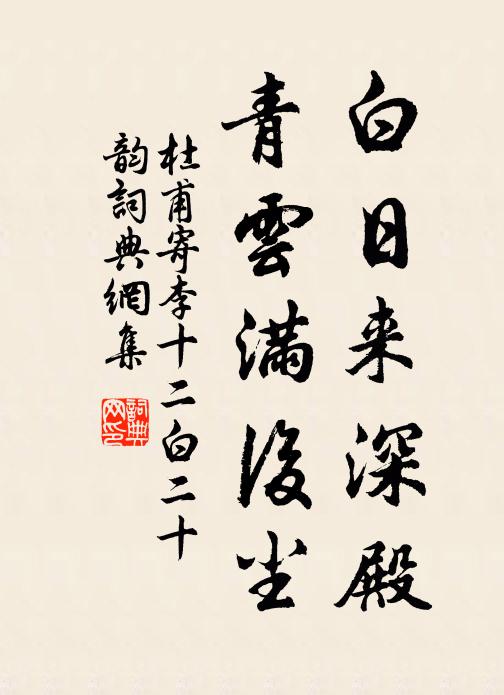 白日来深殿
青雲滿後尘
杜甫寄李十二白二十
韵詞典網集
詞典
网印